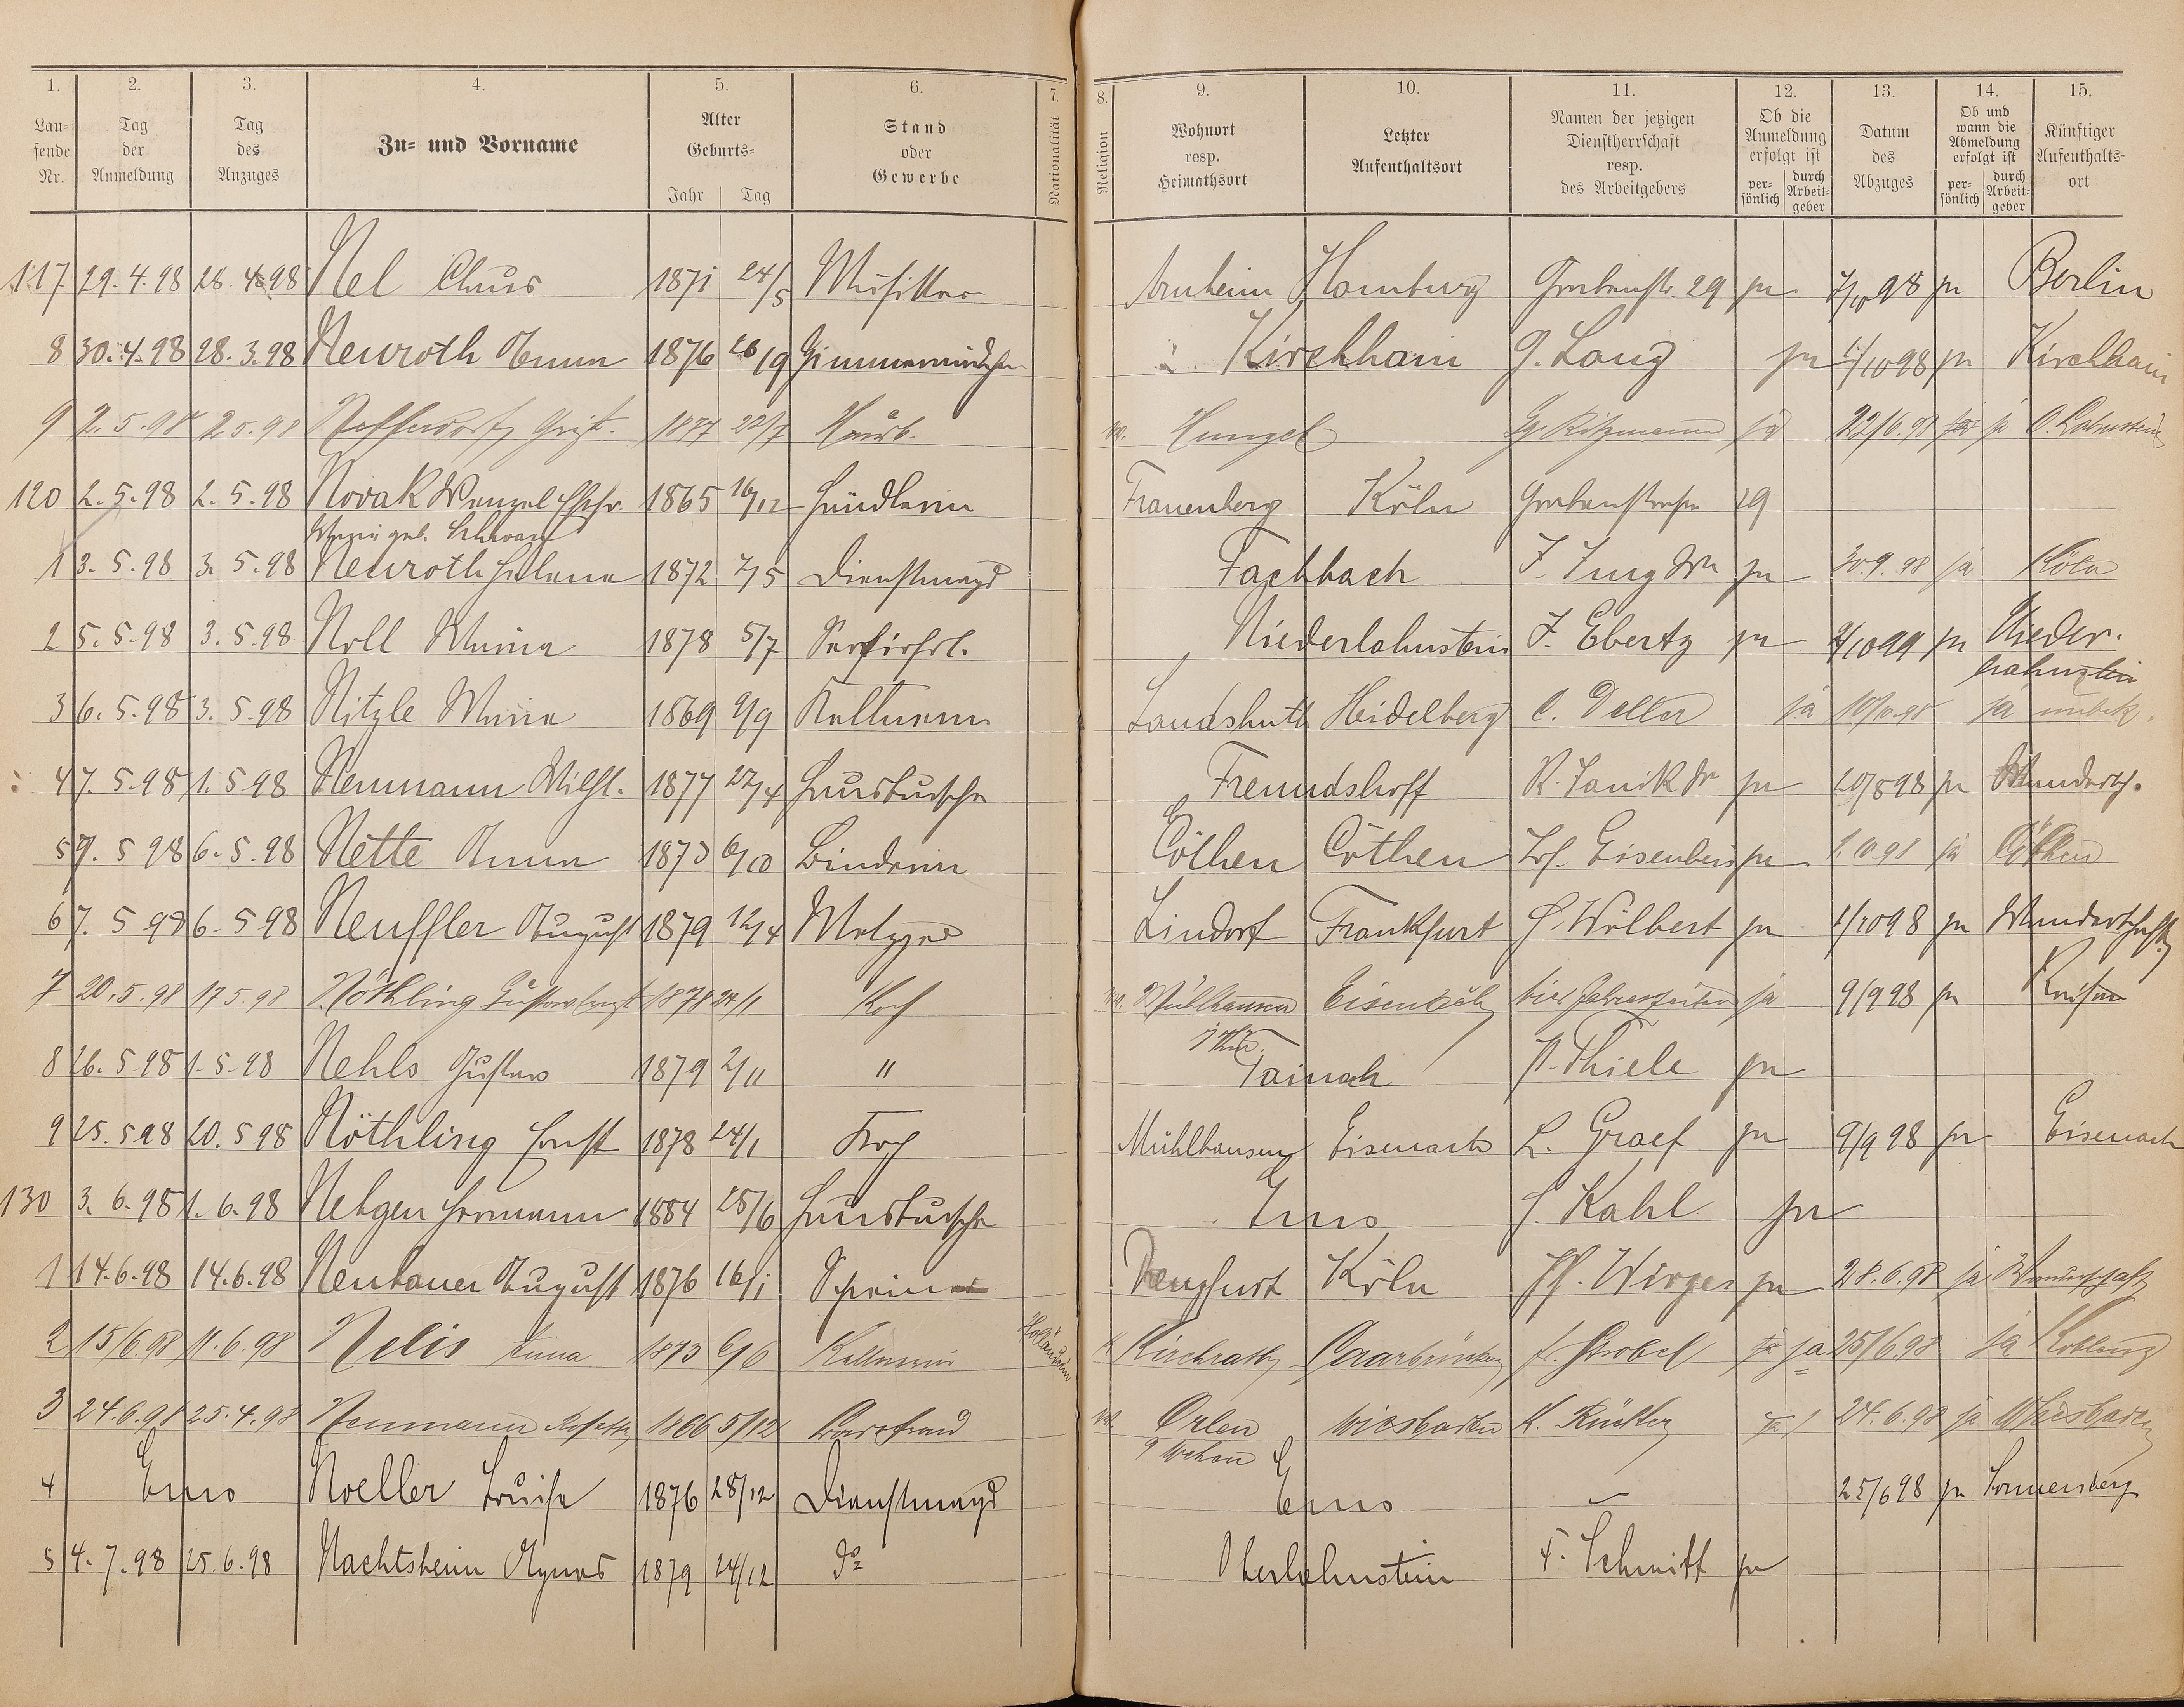 1. 2. 3. 4. 5. 6. 7. 8. 9. 10. 11. 12. 13. 14. 15.
Lau-
fende
Nr.
Tag
der
Anmeldung
Tag
des
Anzuges
Zu- und Vorname
Alter
Geburts-
Jahr Tag
Stand
oder
Gewerbe
Nationalität
Religion
Wohnort
resp.
Heimathsort
Letzter
Aufenthaltsort
Namen der jetzigen
Dienstherrschaft
resp.
des Arbeitgebers
Ob die
Anmeldung
erfolgt ist
per-
sönlich
durch
Arbeit-
geber
Datum
des
Abzuges
Ob und
wann die
Abmeldung
erfolgt ist
per-
sönlich
durch
Arbeit-
geber
Künftiger
Aufenthalts-
ort
117 29.4.98 28.4.98 Nel 1871 24/5 Musiker Arnheim Homburg Grabenstr. 29 ja 98 ja Berlin
8 30.4.98 28.3.98 Neuroth Anna 1876 26/9 Zimmermädchen Kirchhain G. Lang ja 1/10 98 ja Kirchhain
9 2.5.98 2.5.98 22/7 Hausb. Hungel Ritzmann ja 22/6.98 ja O. Lahnstein
120 2.5.98 2.5.98 Novak Wenzel Ehefr. 1865 16/12 Händlerin Frauenberg Köln Grabenstrasse 29
Maria geb. Schwarz
1 3.5.98 3.5.98 Neuroth Helena 1872 7/5 Dienstmagd Fachbach J. Jung Ww ja 30.9.98 ja Köln
2 5.5.98 3.5.98 Noll Maria 1878 5/7 Servirfrl. Niederlahnstein J. Ebertz ja 2/10 99 ja Nieder-
lahnstein
3 6.5.98 3.5.98 Nitzle Maria 1869 9/9 Kellnerin Landshuth Heidelberg C. Deller ja ja unbek.
4 7.5.98 1.5.98 Neumann Wilh. 1877 22/4 Hausbursche Freundshoff R. Janik ja 20/8 98 ja Wandersch.
5 7.5 98 6.5.98 Nette Anna 1873 6/10 Binderin Cöthen Cöthen Eisenbeis ja 1.10.98 ja Cöthen
6 7.5 98 6.5 98 Neuffler August 1879 12/4 Metzger Lindorf Frankfurt Wilbert ja 1/10 98 ja Wanderschaft
7 20.5.98 17.5.98 Nöthling Gustav Ernst 1878 24/1 Koch Mühlhausen Eisenach vier Jahreszeiten ja 9/9 98 ja Reisen
i Thür.
8 26.5 98 1.5.98 Nehls Gustav 1879 2/11 " Tainach P. Thiele ja
9 25.5 98 20.5 98 Nöthling Ernst 1878 24/1 Koch Mühlhausen Eisenach L. Graef ja 9/9 98 ja Eisenach
130 3.6.98 1.6.98 Netgen Hermann 1884 28/6 Hausbursche Ems J. Kahl ja
1 14.6.98 14.6.98 Neubauer August 1876 16/1 Schreiner Rengfurt Köln Wirges ja 28.6.98 ja Wanderschaft
2 15/6.98 11.6.98 Nelis Anna 1873 6/6 Kellnerin Holländerin Kirchrath Saarbrücken Strobel ja ja 25/6.98 ja Koblenz
3 24.6.98 25.4.98 Neumann 1866 5/12 Orlen Wiesbaden K. Rücker ja 24.6.98 ja Wiesbaden
Wehen
4 Ems Noeller Louise 1876 28/12 Dienstmagd Ems – 25/6 98 ja Sonnenberg
5 4.7.98 25.6.98 Nachtsheim Agnes 1879 24/12 do Oberlahnstein F. Schmitt ja